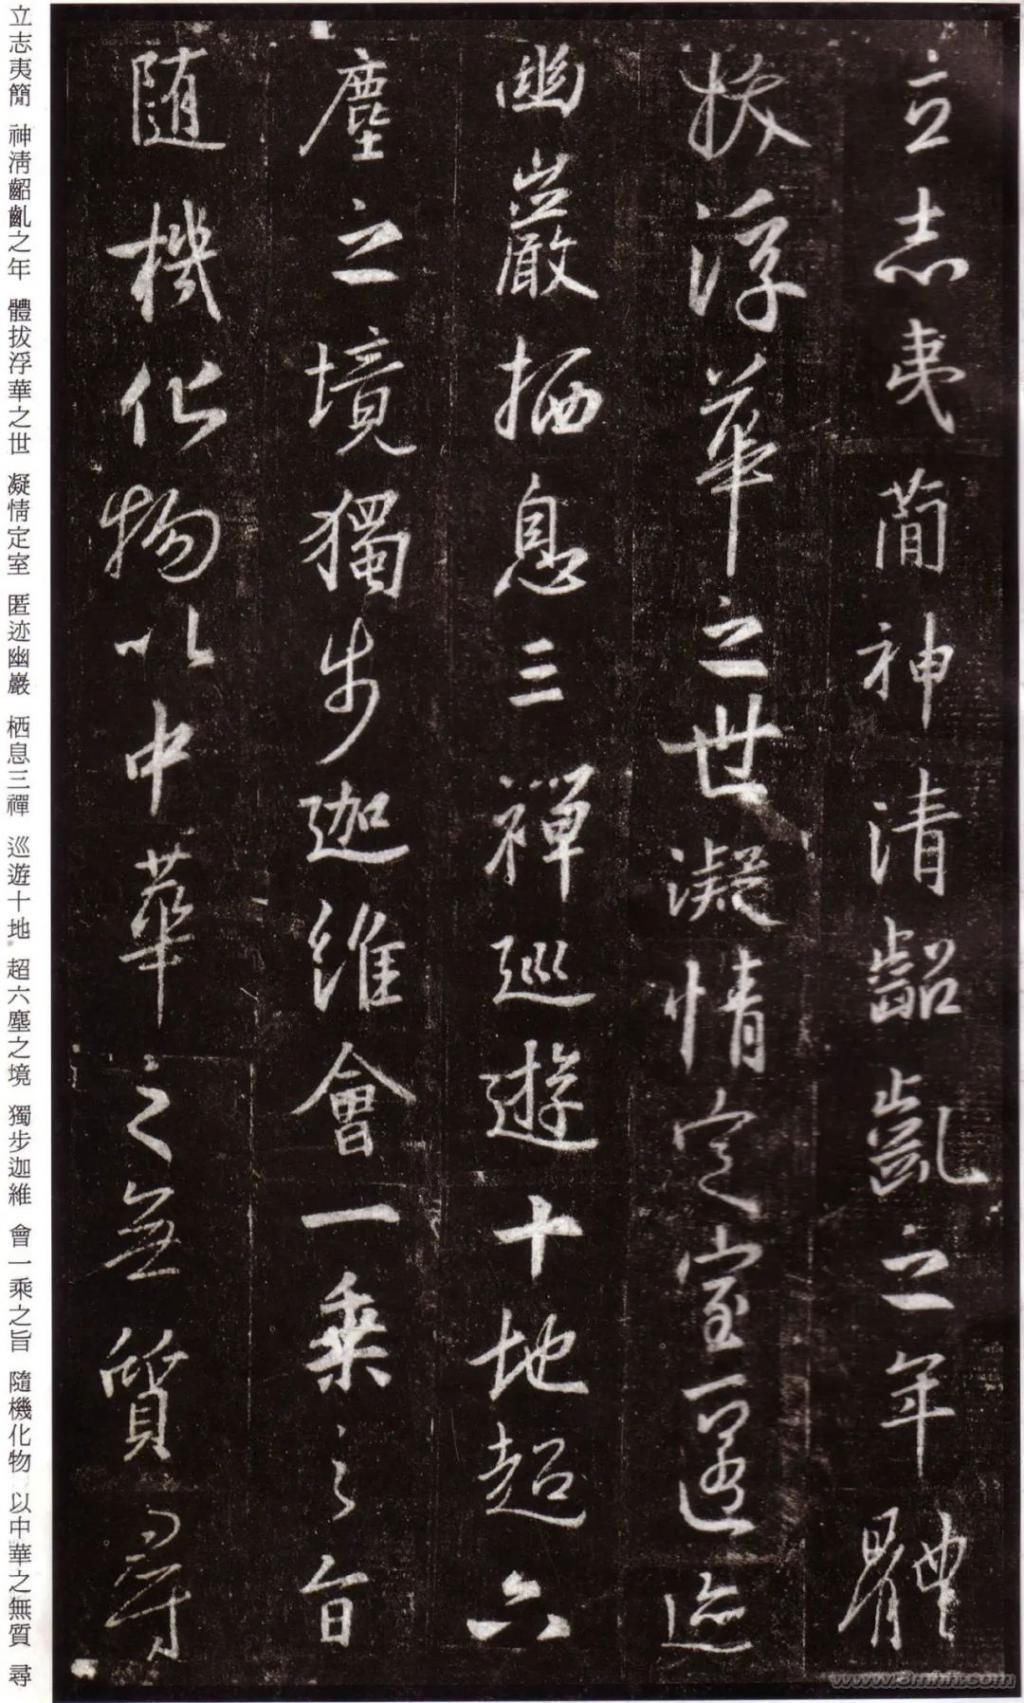 立志夷簡神清齠齔之年體
拔浮華之世凝情定室匿迹
幽巖栖息三禪巡遊十地超六
塵之境獨步迦維會一乘之旨
隨機化物以中華之無質尋
立志夷簡 神清齠齔之年 體拔浮華之世 凝情定室 匿迹幽巖 栖息三禪 巡遊十地 超六塵之境 獨步迦維 會一乘之旨 隨機化物 以中華之無質 尋